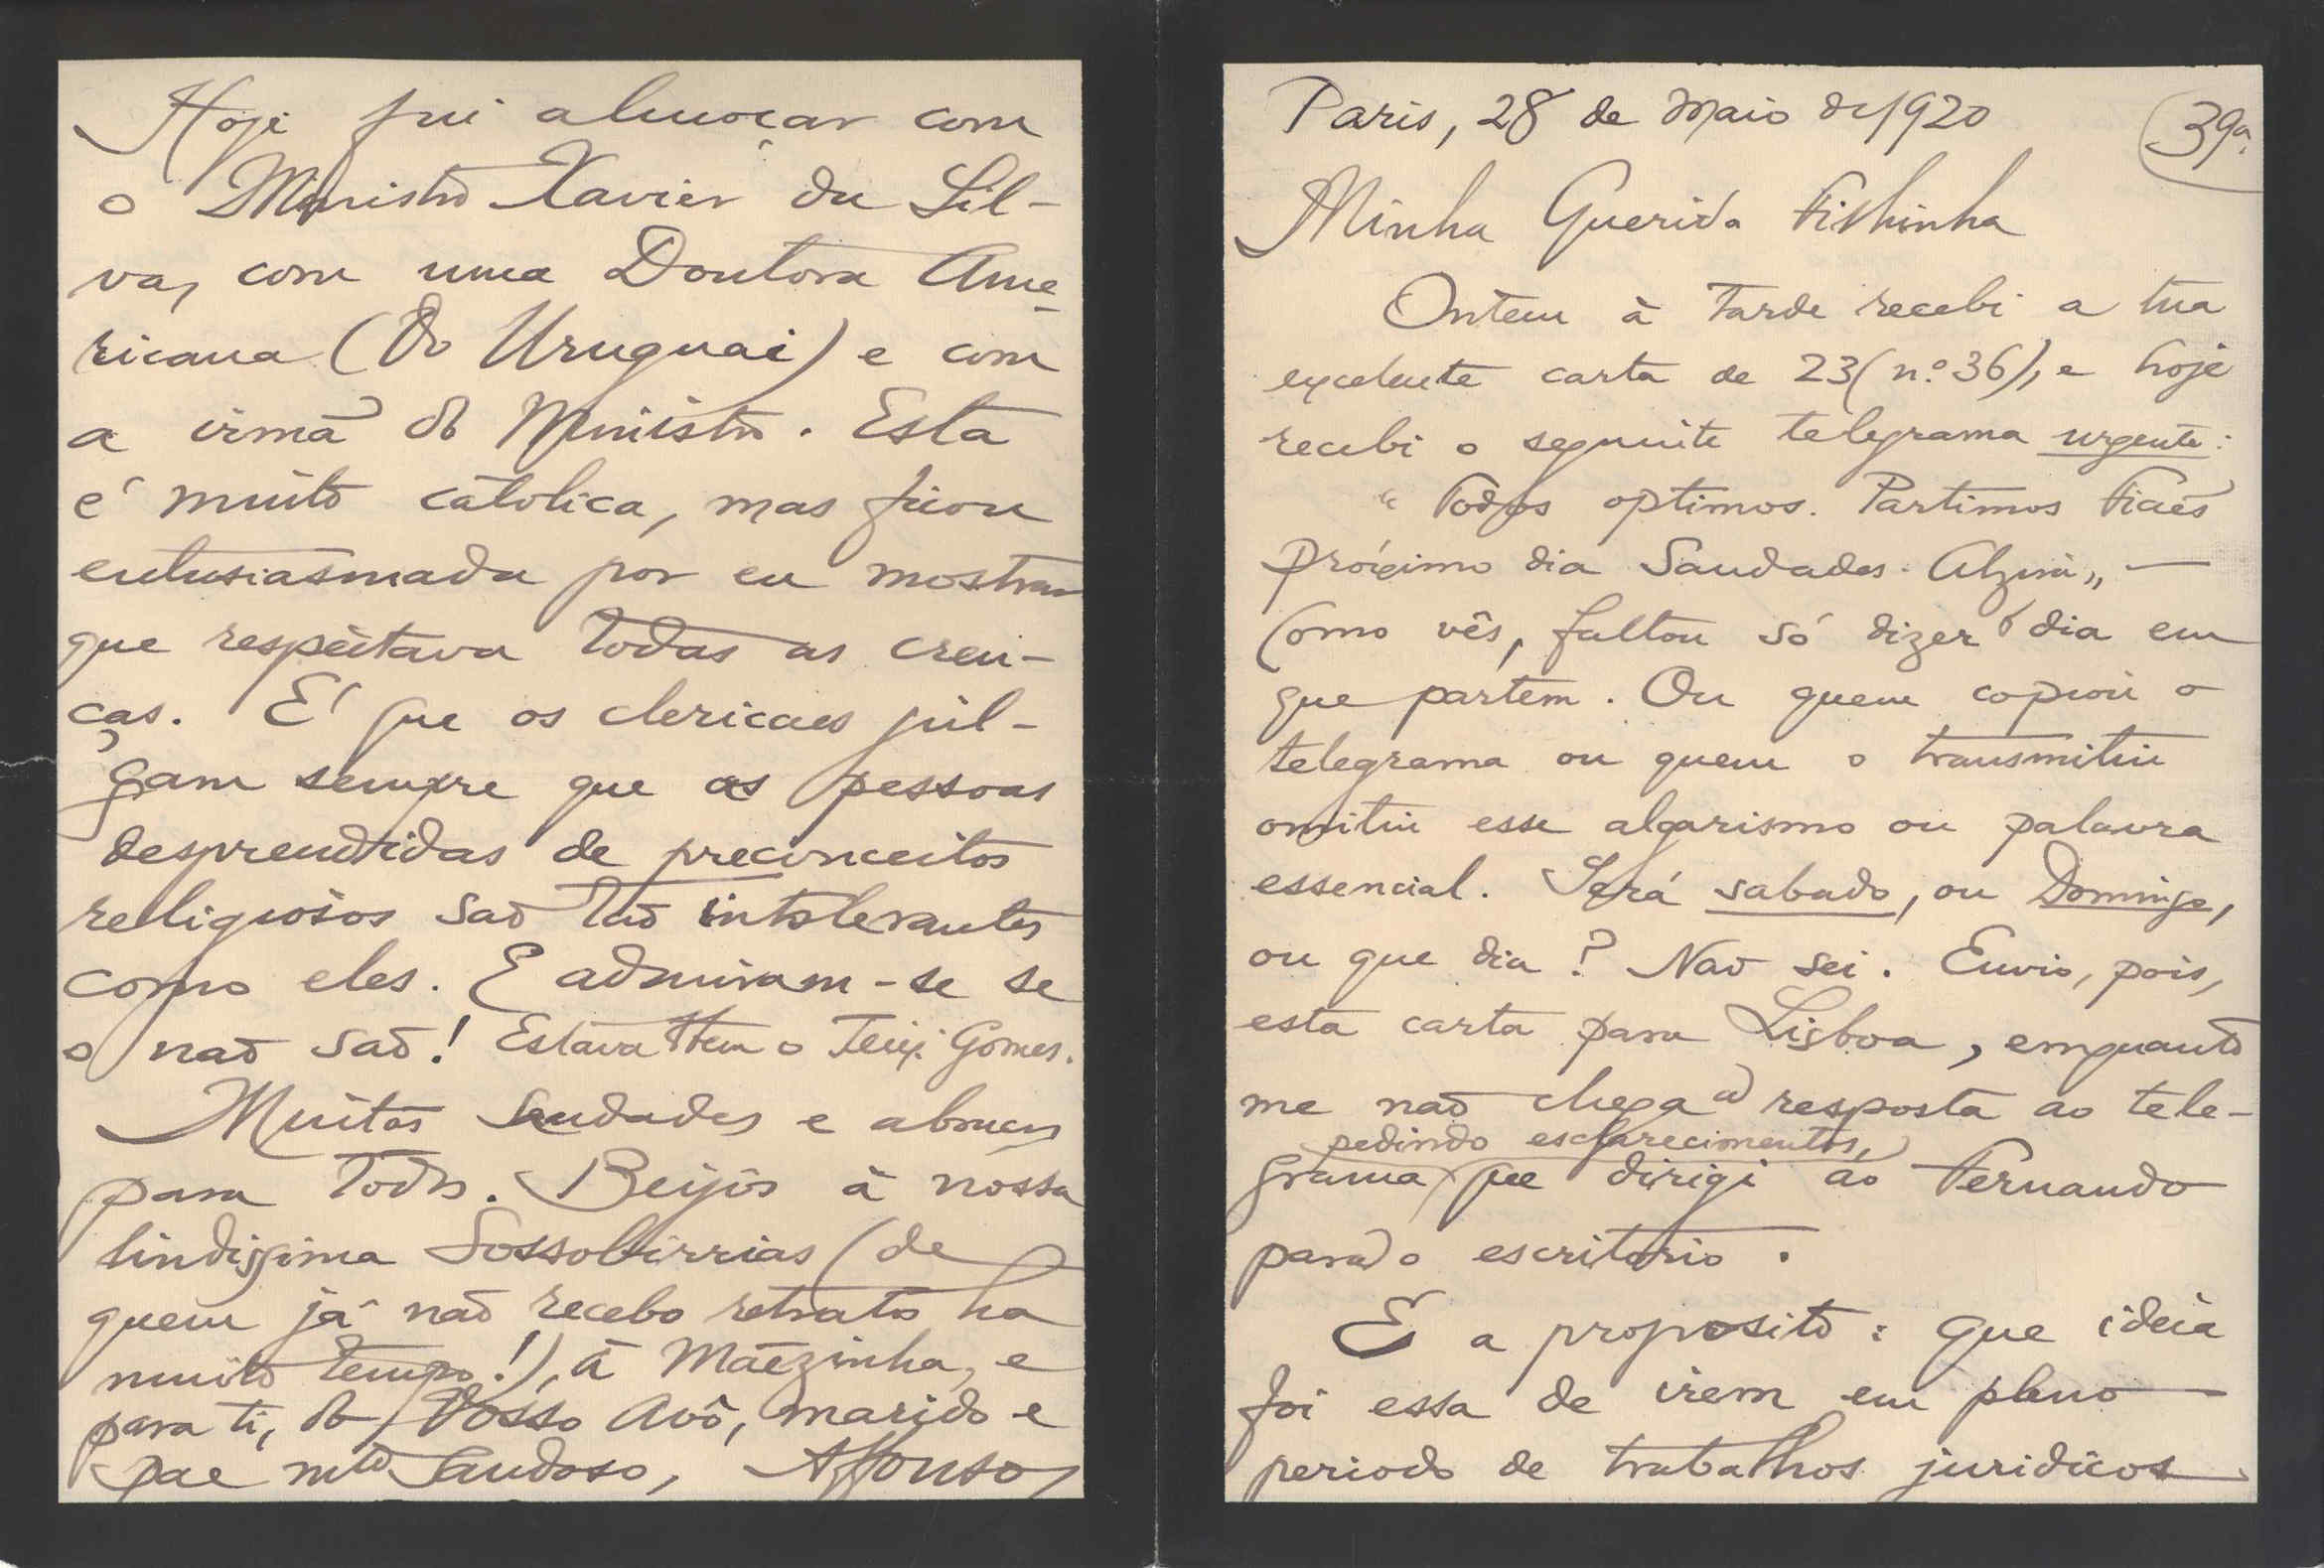 Paris, 28 de Maio de 1920
39ª
Minha Querida Filhinha
Ontem à tarde recebi a tua
excelente carta de 23 (n.º 36), e hoje
recebi o seguinte telegrama urgente:
"Todos optimos. Partimos Fiães
próximo dia Saudades. Alzira" —
Como vês, faltou só dizer o dia em
que partem. Ou quem copiou o
telegrama ou quem o transmitiu
omitiu esse algarismo ou palavra
essencial. Será sabado, ou Domingo,
ou que dia? Não sei. Envio, pois,
esta carta para Lisboa, emquanto
me não chega a resposta ao tele-
pedindo esclarecimentos,
grama que dirigi ao Fernando
para o escritorio.
E a proposito: que ideia
foi essa de irem em pleno
periodo de trabalhos juridicos
Hoje fui almoçar com
o Ministro Xavier da Sil-
va, com uma Doutora Ame-
ricana (do Uruguai) e com
a irmã do Ministro. Esta
é muito católica, mas ficou
entusiasmada por eu mostrar
que respeitava todas as cren-
ças. É que os clericaes jul-
gam sempre que as pessoas
desprendidas de preconceitos
religiosos são tão intolerantes
como eles. E admiram-se se
o não são! Estava tem o Teix. Gomes.
Muitas saudades e abraços
para todos. Beijos à nossa
lindissima Sossobirrias (de
quem já não recebo retrato ha
muito tempo!), à Mãezinha, e
para ti, do Vosso Avô, marido e
pae mto saudoso, Affonso